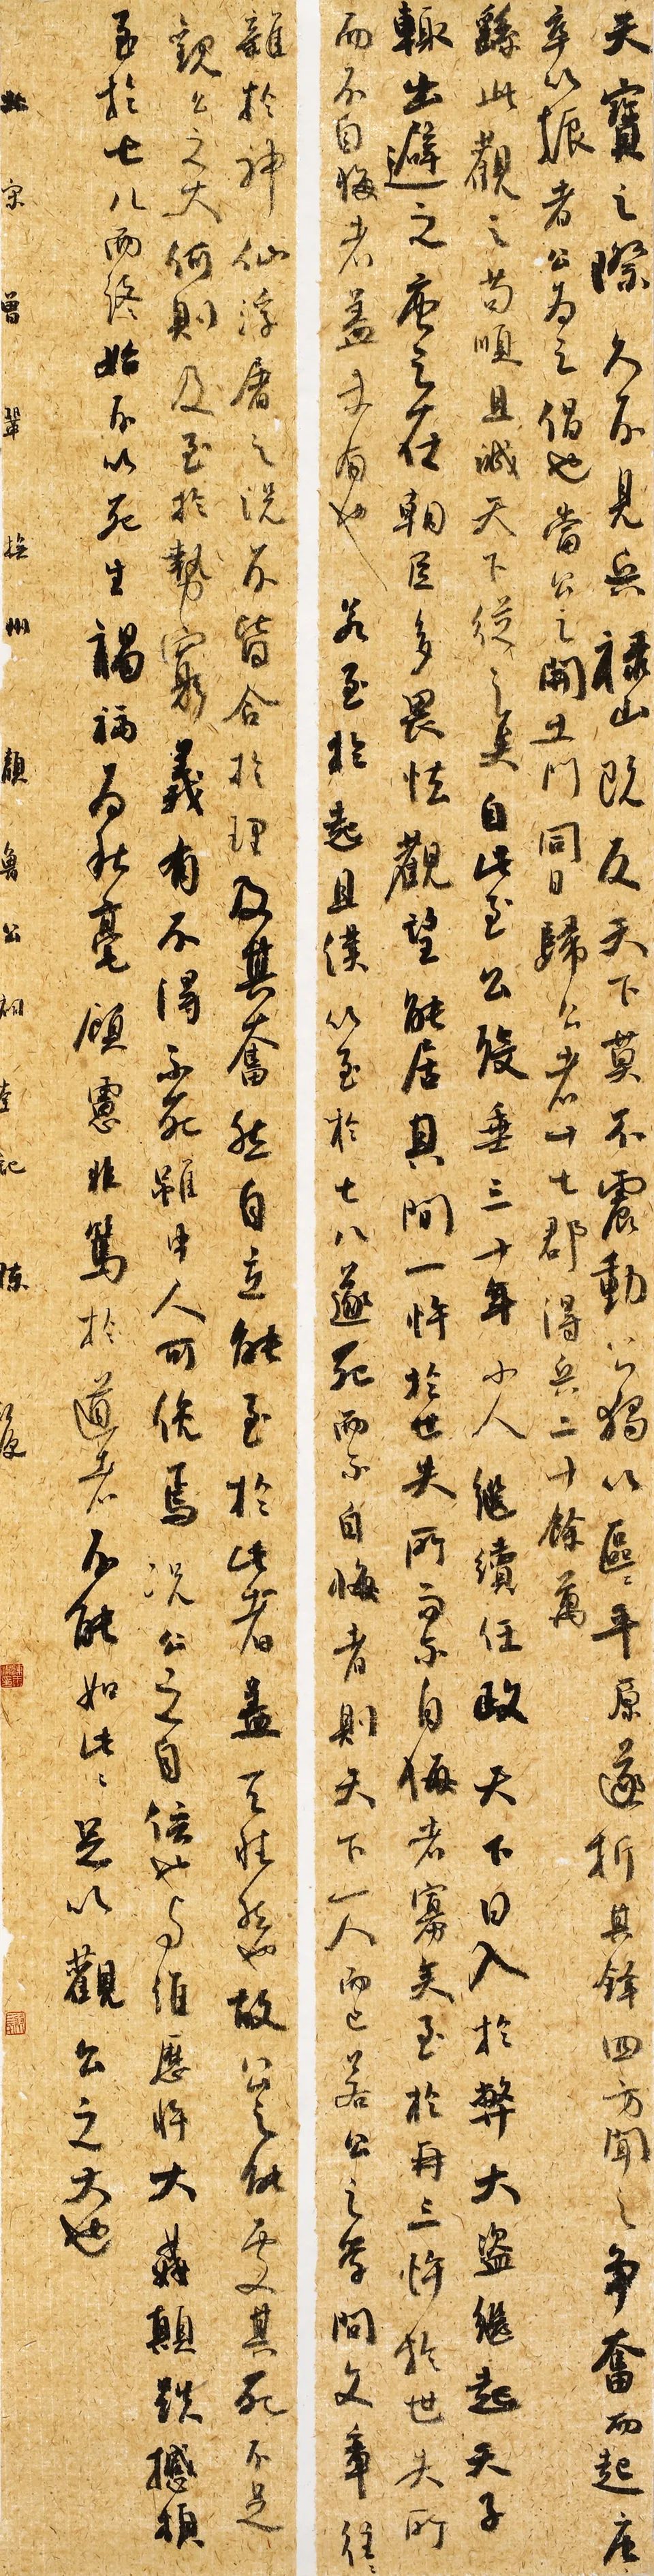 天寶之際久不見兵祿山既反天下莫不震動公獨以區〻平原遂折其鋒四方聞之爭奮而起唐
卒以振者公為之倡也當公之開土門同日歸公者十七郡得兵二十餘萬
繇此觀之苟順且誠天下從之矣自此至公歿垂三十年小人繼續任政天下日入於弊大盜繼起天子
輒出避之唐之在朝臣多畏怯觀望能居其間一忤於世失所而不自悔者寡矣至於再三忤於世失所
而不自悔者蓋未有也若至於起且僕以至於七八遂死而不自悔者則天下一人而已若公之學問文章往〻
雜於神仙浮屠之說不皆合於理及其奮然自立能至於此者蓋天性然也故公之能處其死不足
觀公之大何則及至於勢窮義有不得不死雖中人可俛焉況公之自信也與維歷忤大姦顛跌撼頓
至於七八而終始不以死生禍福為秋毫顧慮非篤於道者不能如此〻足以觀公之大也
北宋曾鞏撫州顏魯公祠堂記陳